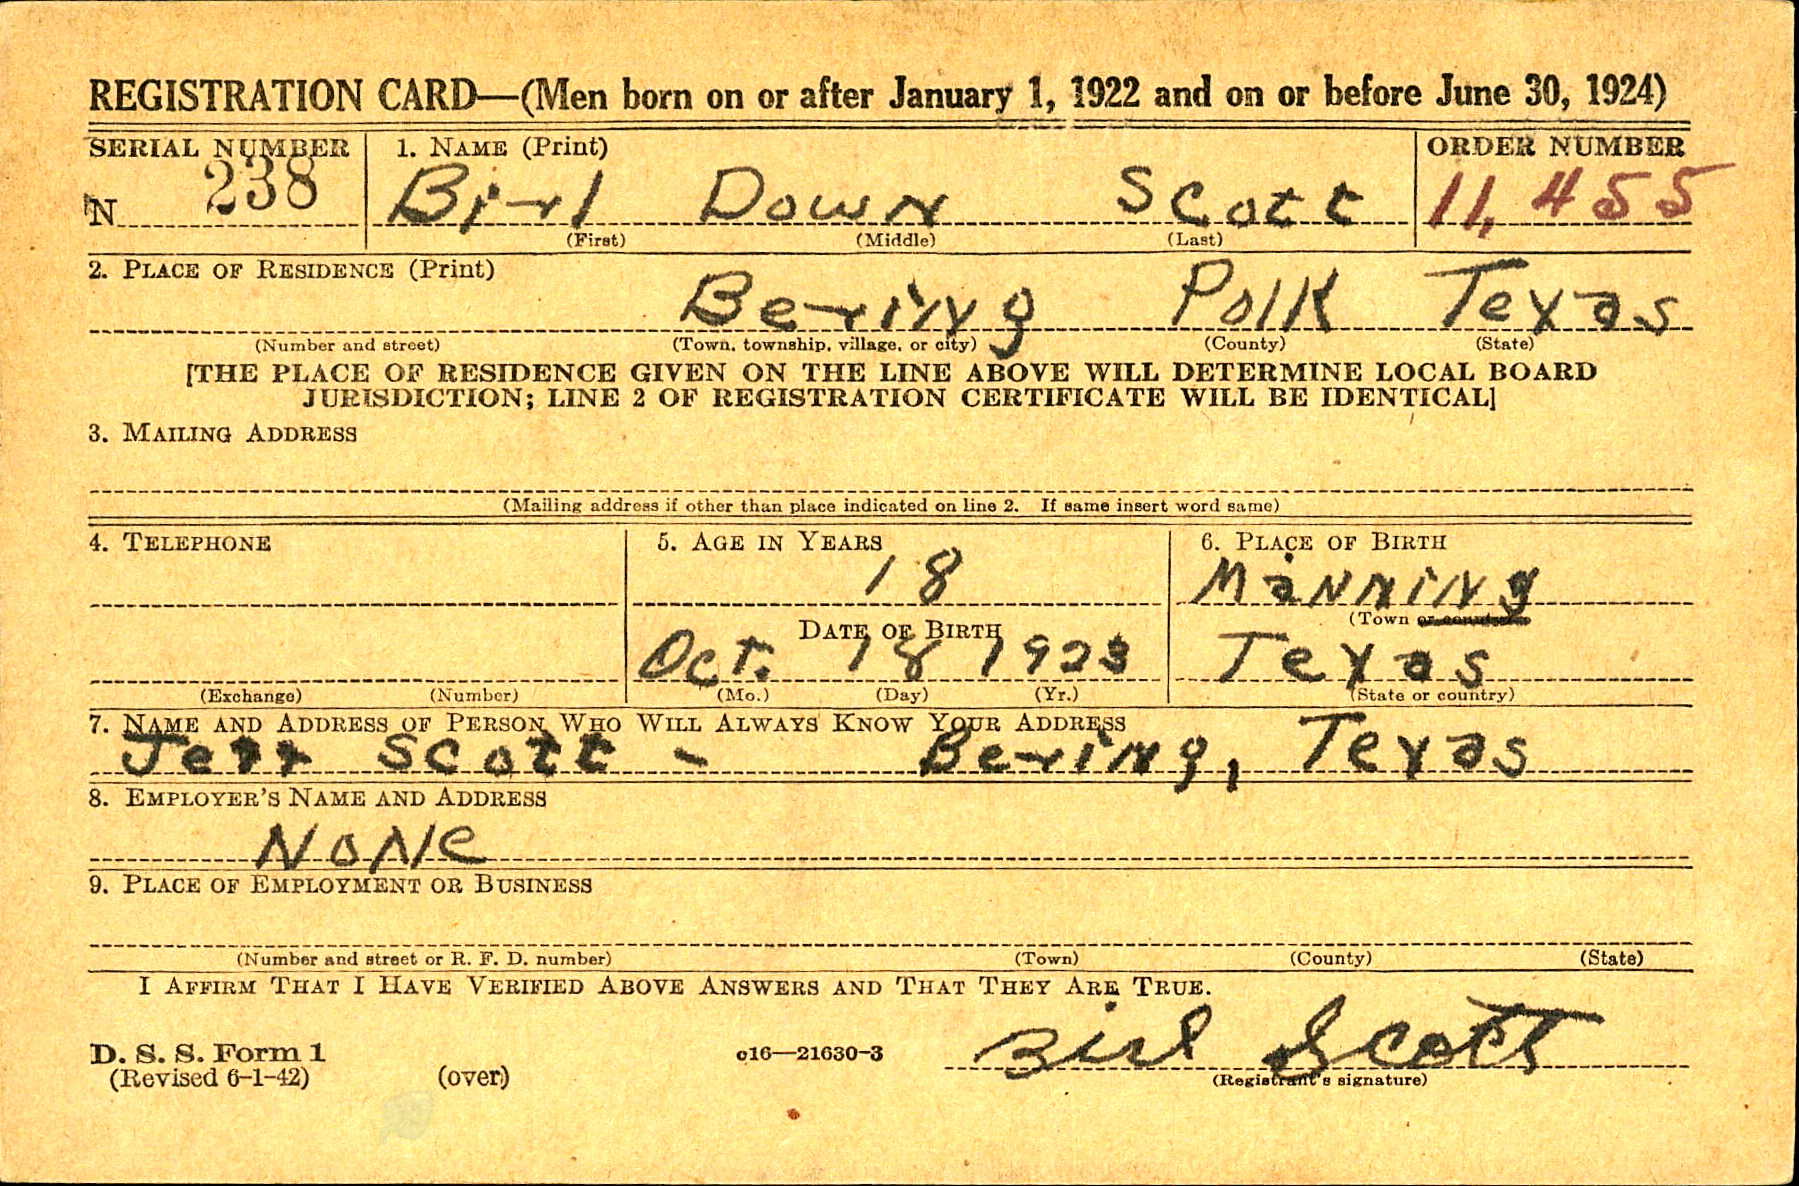 REGISTRATION CARD—(Men born on or after January 1, 1922 and on or before June 30, 1924)
SERIAL NUMBER 1. NAME (Print) ORDER NUMBER
N 238 Birl Down Scott 11,455
(First) (Middle) (Last)
2. PLACE OF RESIDENCE (Print)
Bering Polk Texas
(Number and street) (Town, township, village, or city) (County) (State)
[THE PLACE OF RESIDENCE GIVEN ON THE LINE ABOVE WILL DETERMINE LOCAL BOARD
JURISDICTION; LINE 2 OF REGISTRATION CERTIFICATE WILL BE IDENTICAL]
3. MAILING ADDRESS
(Mailing address if other than place indicated on line 2. If same insert word same)
4. TELEPHONE 5. AGE IN YEARS 6. PLACE OF BIRTH
18 Manning
DATE OF BIRTH (Town or county)
Oct. 18 1923 Texas
(Exchange) (Number) (Mo.) (Day) (Yr.) (State or country)
7. NAME AND ADDRESS OF PERSON WHO WILL ALWAYS KNOW YOUR ADDRESS
Jeff Scott - Bering, Texas
8. EMPLOYER'S NAME AND ADDRESS
None
9. PLACE OF EMPLOYMENT OR BUSINESS
(Number and street or R. F. D. number) (Town) (County) (State)
I AFFIRM THAT I HAVE VERIFIED ABOVE ANSWERS AND THAT THEY ARE TRUE.
D. S. S. Form 1 c16—21630-3 Birl Scott
(Revised 6-1-42) (over) (Registrant's signature)